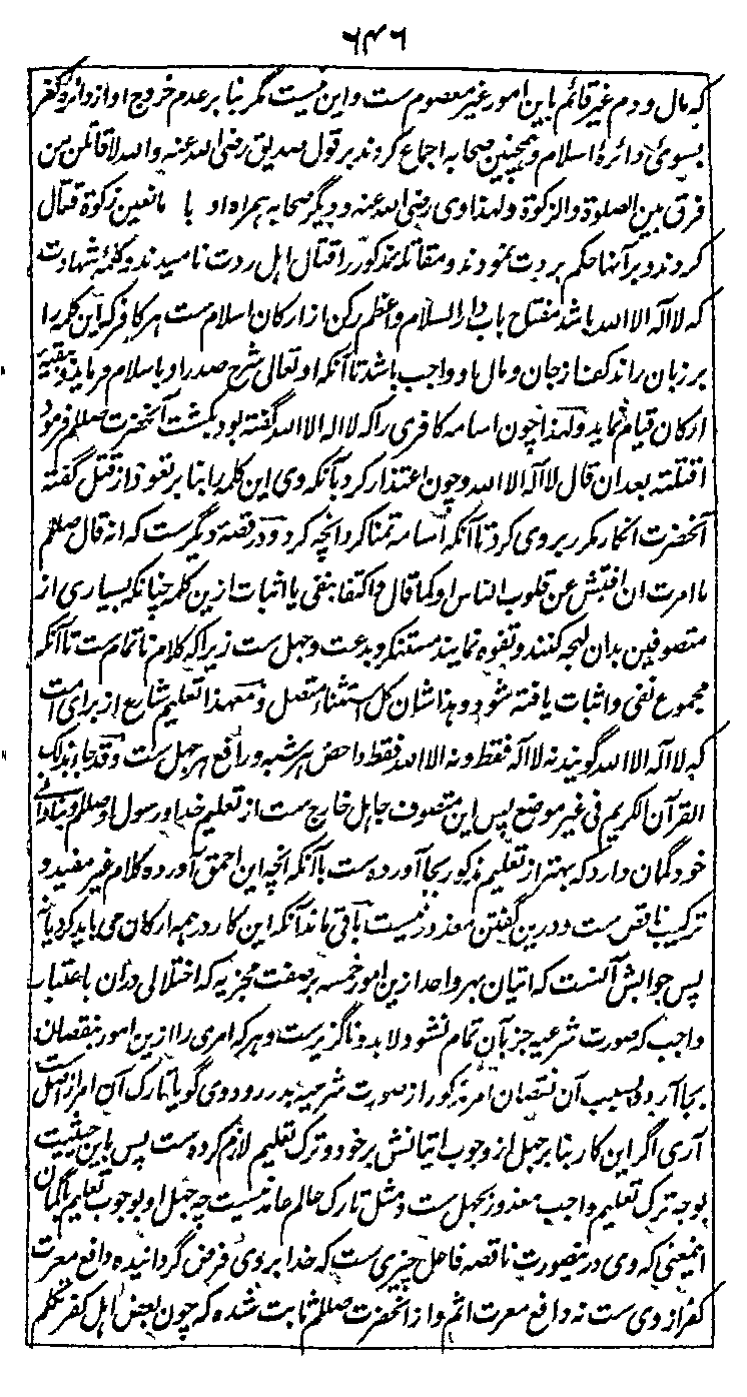 ۶۴۶
که مال و دم غیر قائم باین امور غیر معصوم ست و این نیست مگر بنا بر عدم خروج او از دائرهٔ کفر
بسوی دائرهٔ اسلام و همچنین صحابه اجماع کردند بر قول صدیق رضی الله عنه والله لاقاتلن من
فرق بین الصلوة والزکوة ولهذا وی رضی الله عنه و دیگر صحابه همراه او با مانعین زکوة قتال
کردند و بر آنها حکم بردت نمودند و مقاتله مذکور را قتال اهل ردت نامیدند و کلمهٔ شهادت
که لا اله الا الله باشد مفتاح باب دار السلام و اعظم رکن از ارکان اسلام ست هر کافر که این کلمه را
بر زبان راند کف از جان و مال او واجب باشد تا آنکه او تعالی شرح صدر او باسلام فرماید و ببقیه
ارکان قیام نماید ولهذا چون اسامه کافری را که لا اله الا الله گفته بود بکشت آنحضرت صللم فرمود
اقتلته بعد ان قال لا اله الا الله و چون اعتذار کرد بآنکه وی این کلمه را بنا بر تعوذ از قتل گفته
آنحضرت انکار مکرر بر وی کرد تا آنکه اسامه تمنا کرد انچه کرد و در قصهٔ دیگر ست که انه قال صللم
ما امرت ان افتش عن قلوب الناس او کما قال و اکتفا بنفی یا اثبات ازین کلمه چنانکه بسیاری از
متصوفین بدان لهجه کنند و تفوه نمایند مستنکر و بدعت و جهل ست زیرا که کلام ناتمام ست تا آنکه
مجموع نفی و اثبات یافته شود و هذا شان کل استثناء متصل و معهذا تعلیم شارع از برای امت
که لا اله الا الله گویند نه لا اله فقط و نه الا الله فقط داحض هر شبه و رافع هر جهل ست وقد جاء بذلک
القرآن الکریم فی غیر موضع پس این متصوف جاهل خارج ست از تعلیم خدا و رسول او صللم و بنادانی
خود گمان دارد که بهتر از تعلیم مذکور بجا آورده ست با آنکه انچه این احمق آورده کلام غیر مفید و
ترکیب ناقص ست و درین گفتن معذور نیست باقی ماند آنکه این کار در همه ارکان می باید کرد یا نه
پس جوابش آنست که اتیان بهر واحد ازین امور خمسه بر صفت مجزیه که اختلالی دران باعتبار
واجب که صورت شرعیه جز بآن تمام نشود لابد و ناگزیر ست و هر که امری را ازین امور بنقصان
بجا آرد و بسبب آن نقصان امر مذکور از صورت شرعیه بدر رود وی گویا تارک آن امر از اصل ست
آری اگر این کار بنا بر جهل از وجوب اتیانش بر خود و ترک تعلیم لازم کرده ست پس باین حیثیت
بوجه ترک تعلیم واجب معذور بجهل ست و مثل تارک عالم عامد نیست چه جهل او بوجوب تعلیم با گمان
اینمعنی که وی درینصورت ناقصه فاعل چیزی ست که خدا بر وی فرض گردانیده دافع معرت
کفر از وی ست نه دافع معرت اثم و از آنحضرت صللم ثابت شده که چون بعض اهل کفر تکلم